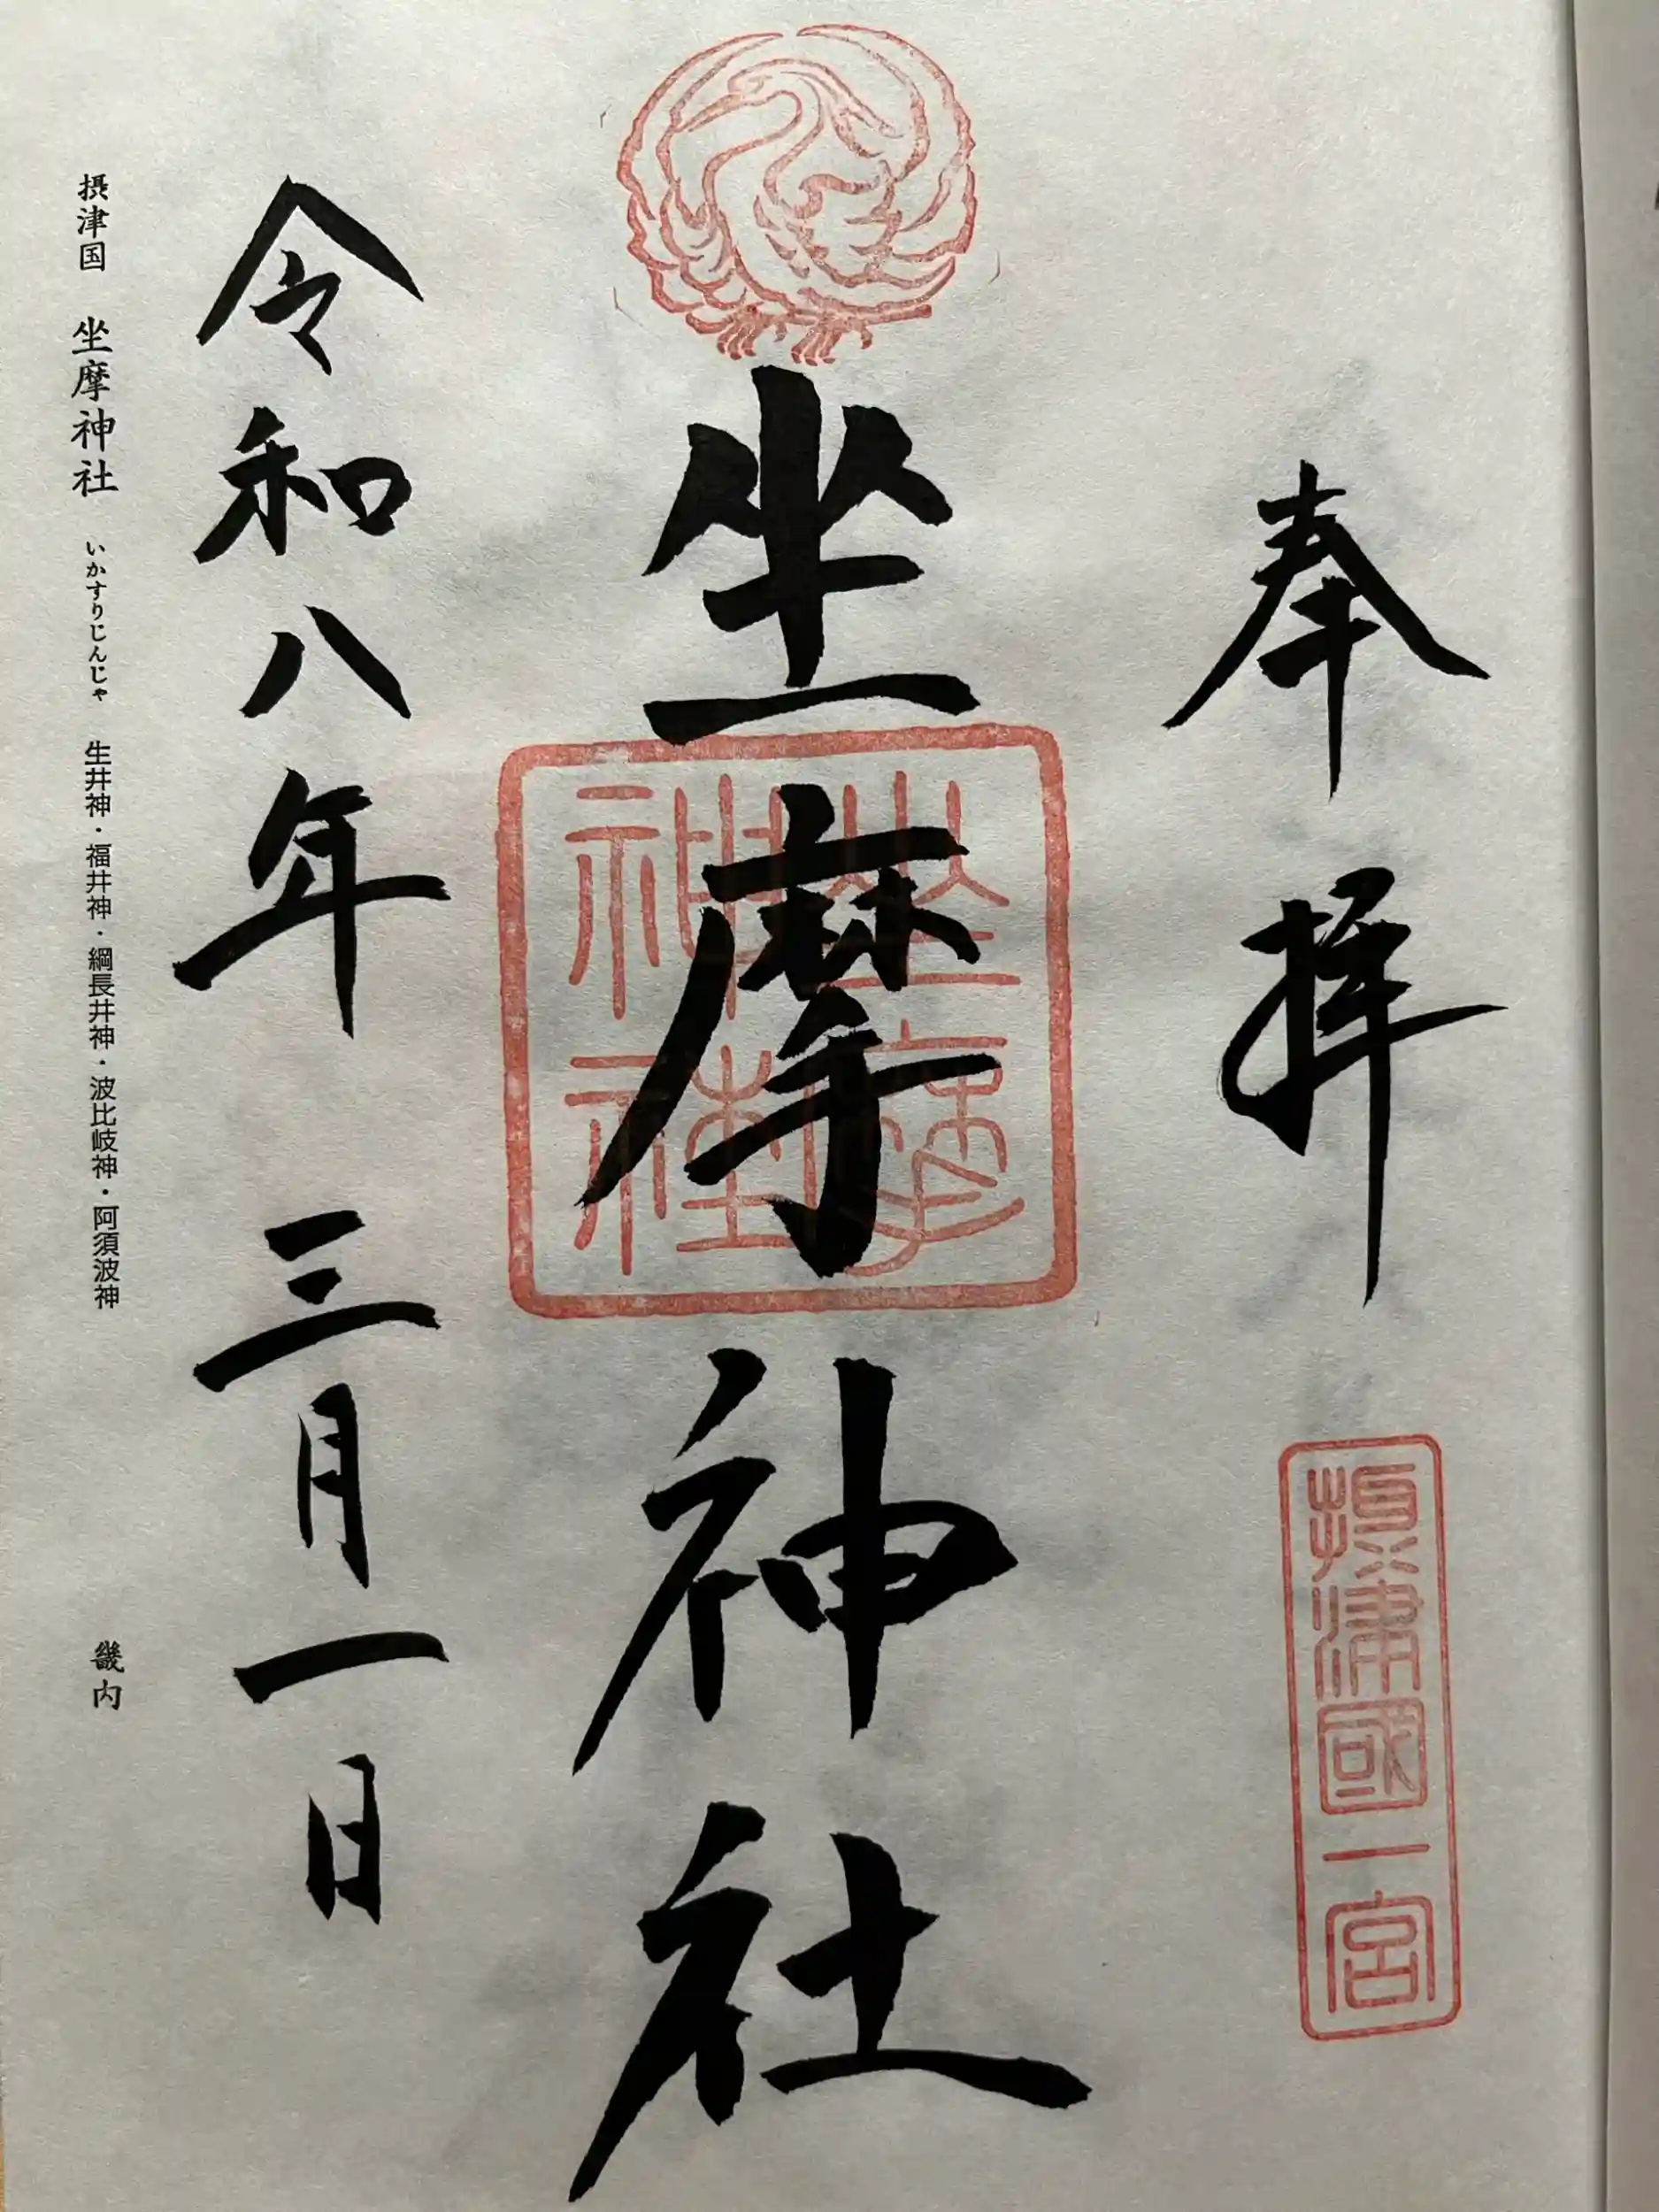 奉拝
摂津國一宮
坐摩神社
坐摩
神社
令和八年 三月一日
摂津国 坐摩神社 いかすりじんじゃ 生井神・福井神・綱長井神・波比岐神・阿須波神 畿内